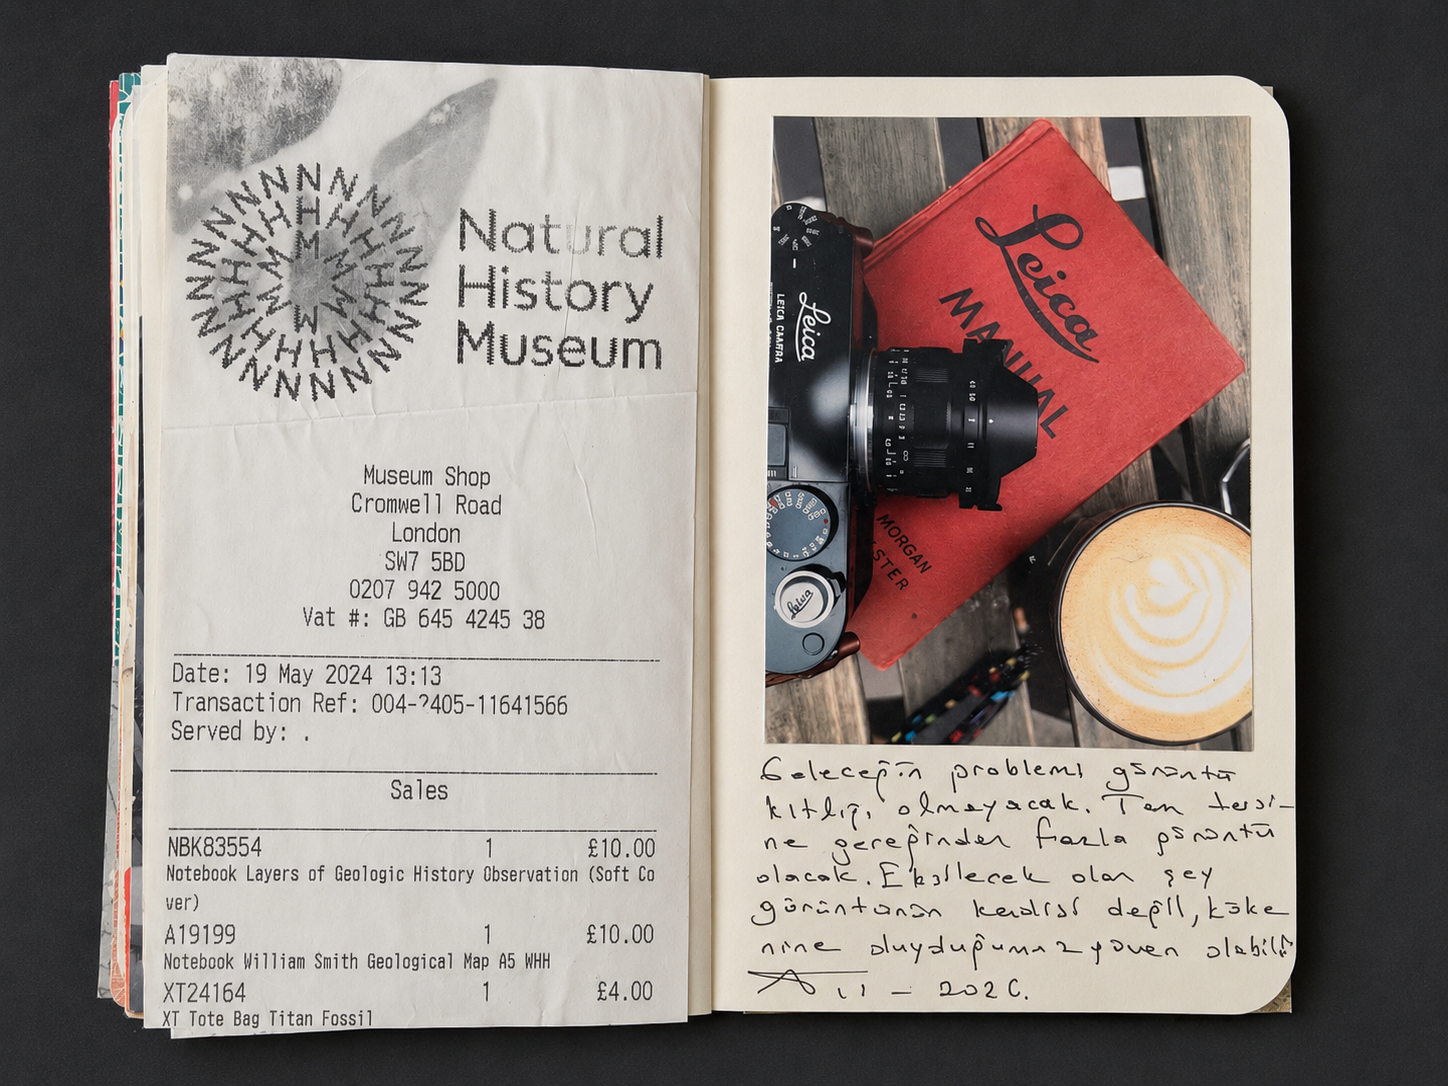 Natural
History
Museum
Museum Shop
Cromwell Road
London
SW7 5BD
0207 942 5000
Vat #: GB 645 4245 38
Date: 19 May 2024 13:13
Transaction Ref: 004-2405-11641566
Served by: .
Sales
NBK83554 1 £10.00
Notebook Layers of Geologic History Observation (Soft Co
ver)
A19199 1 £10.00
Notebook William Smith Geological Map A5 WHH
XT24164 1 £4.00
XT Tote Bag Titan Fossil
Leica
MANUAL
MORGAN
Leica
LEICA CAMERA
Leica
Geleceğin problemi görüntü
kıtlığı olmayacak. Tam tersi-
ne gereğinden fazla görüntü
olacak. Eksilecek olan şey
görüntünün kendisi değil, köke
nine duyduğumuz güven olabilir